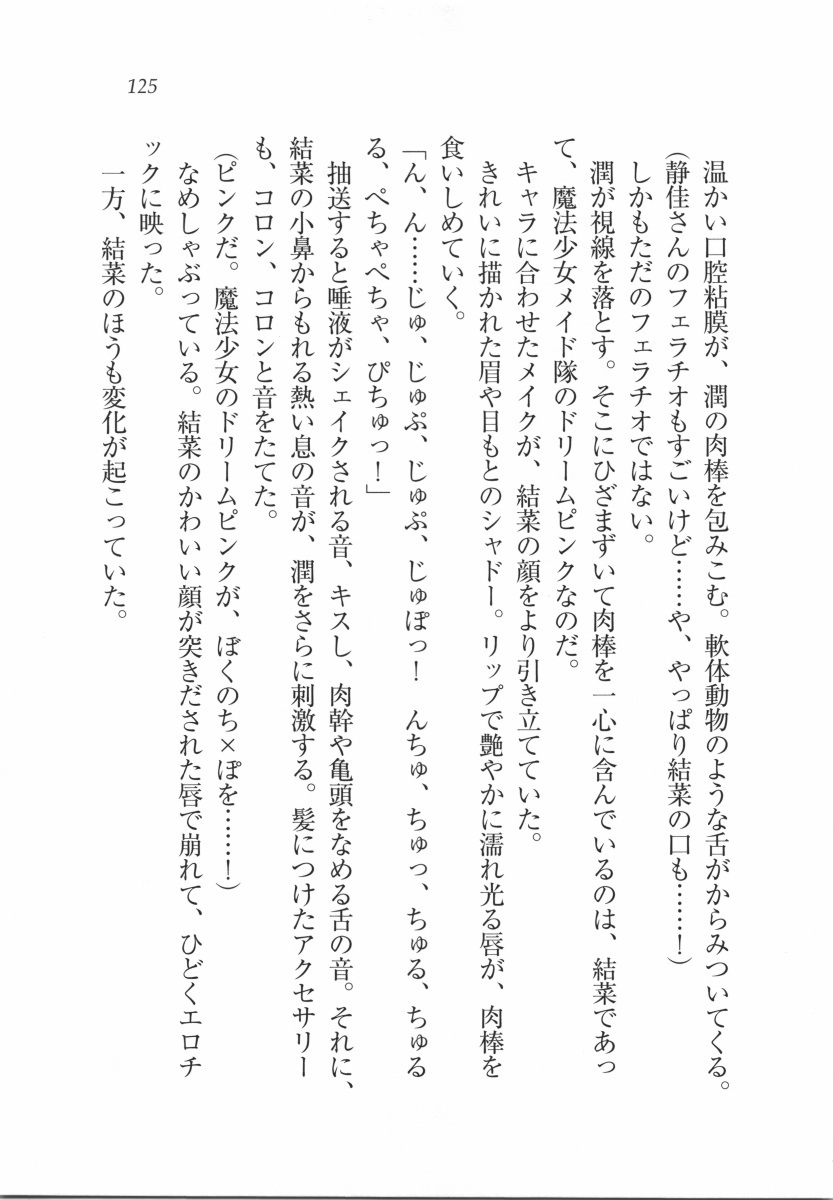 125
温かい口腔粘膜が、潤の肉棒を包みこむ。軟体動物のような舌がからみついてくる。
(静佳さんのフェラチオもすごいけど……や、やっぱり結菜の口も……!)
しかもただのフェラチオではない。
潤が視線を落とす。そこにひざまずいて肉棒を一心に含んでいるのは、結菜であっ
て、魔法少女メイド隊のドリームピンクなのだ。
キャラに合わせたメイクが、結菜の顔をより引き立てていた。
きれいに描かれた眉や目もとのシャドー。リップで艶やかに濡れ光る唇が、肉棒を
食いしめていく。
「ん、ん……じゅ、じゅぷ、じゅぷ、じゅぽっ! んちゅ、ちゅっ、ちゅる、ちゅる
る、ぺちゃぺちゃ、ぴちゅっ!」
抽送すると唾液がシェイクされる音、キスし、肉幹や亀頭をなめる舌の音。それに、
結菜の小鼻からもれる熱い息の音が、潤をさらに刺激する。髪につけたアクセサリー
も、コロン、コロンと音をたてた。
(ピンクだ。魔法少女のドリームピンクが、ぼくのち×ぽを……!)
なめしゃぶっている。結菜のかわいい顔が突きだされた唇で崩れて、ひどくエロチ
ックに映った。
一方、結菜のほうも変化が起こっていた。